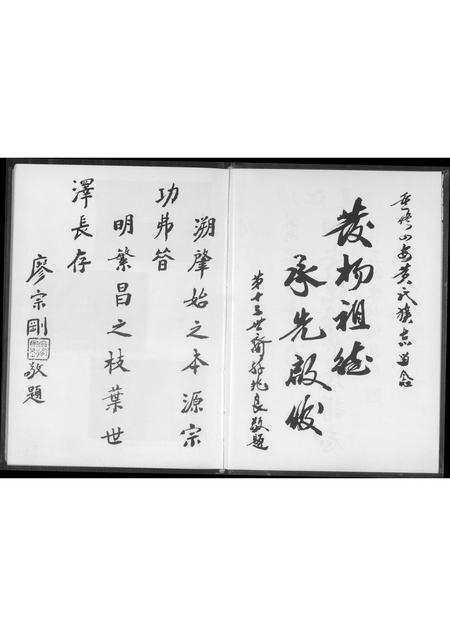 黄氏族志
發揚祖德
承先啟後
第十三世裔孫兆良敬題
溯肇始之本源宗
功弗替
明繁昌之枝葉世
澤長存
廖宗剛
敬題